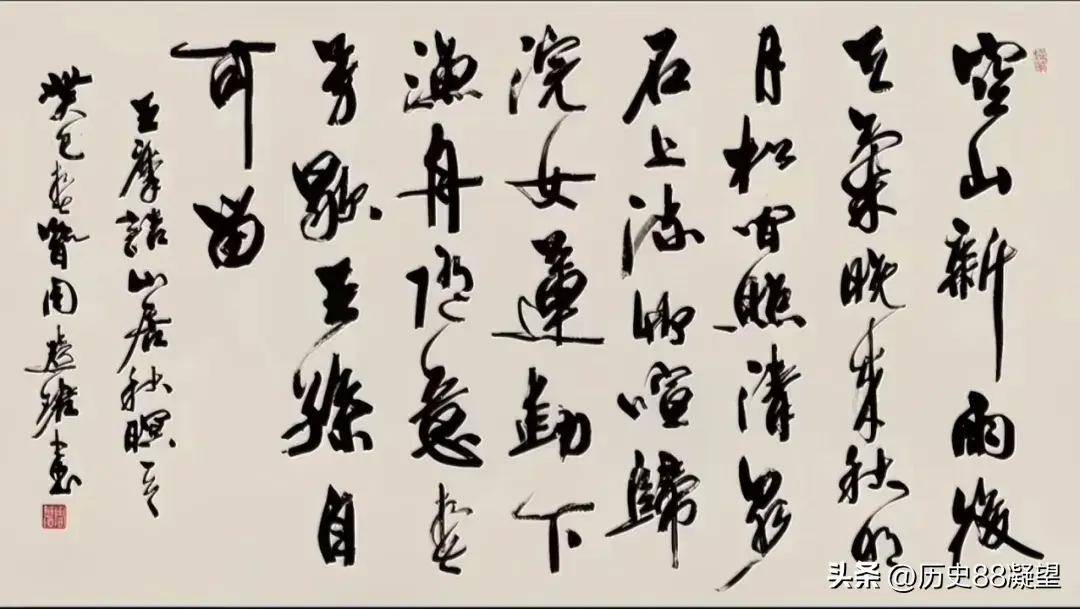 空山新雨後
天氣晚來秋明
月松間照清泉
石上流竹喧歸
浣女蓮動下
漁舟隨意春
芳歇王孫自
可留
王摩詰山居秋暝
癸巳春 書
头条 @历史88凝望